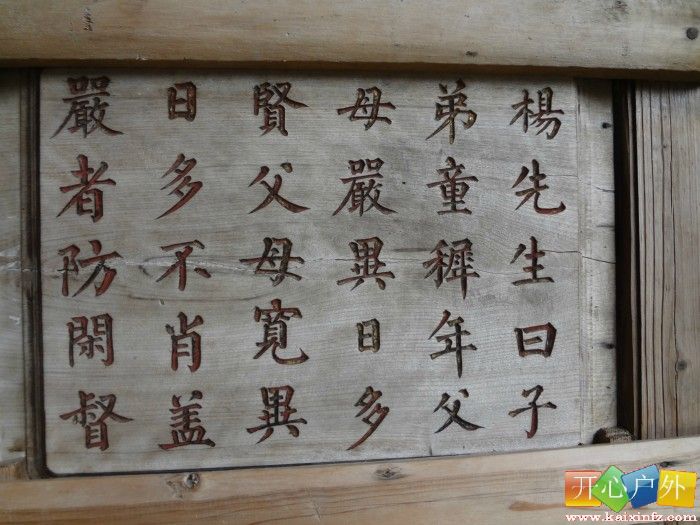 楊先生曰子
弟童穉年父
母嚴異日多
賢父母寬異
日多不肖盖
嚴者防閑督
开心户外
www.kaixinfz.com